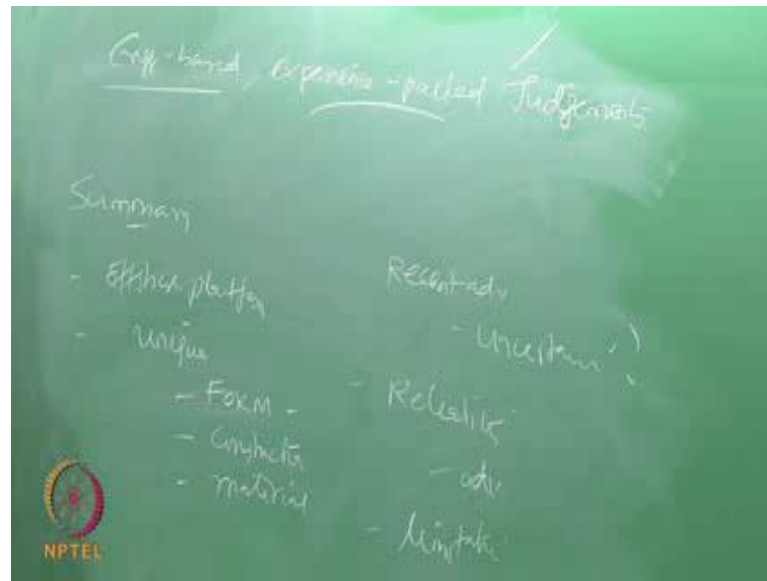 Engg-based, experience-packed Judgements
Summary
- offshore platform
- unique
- Form -
- Construction
- material
Recent adv.
- Uncertain
- Reliability
- adv
-
NPTEL